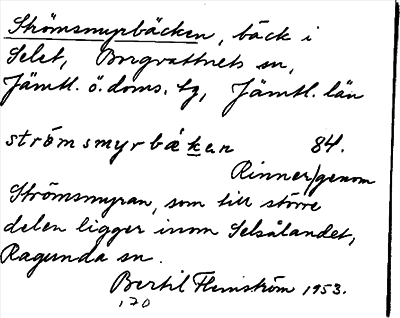 Strömsmyrbäcken, bäck i
Selet, Borgvattnets sn,
Jämtl. ö. doms. tg, Jämtl. län
strömsmyrbäkən 84.
Rinner genom
Strömsmyran, som till större
delen ligger inom Selsålandet,
Ragunda sn.
Bertil Flemström 1953.
170